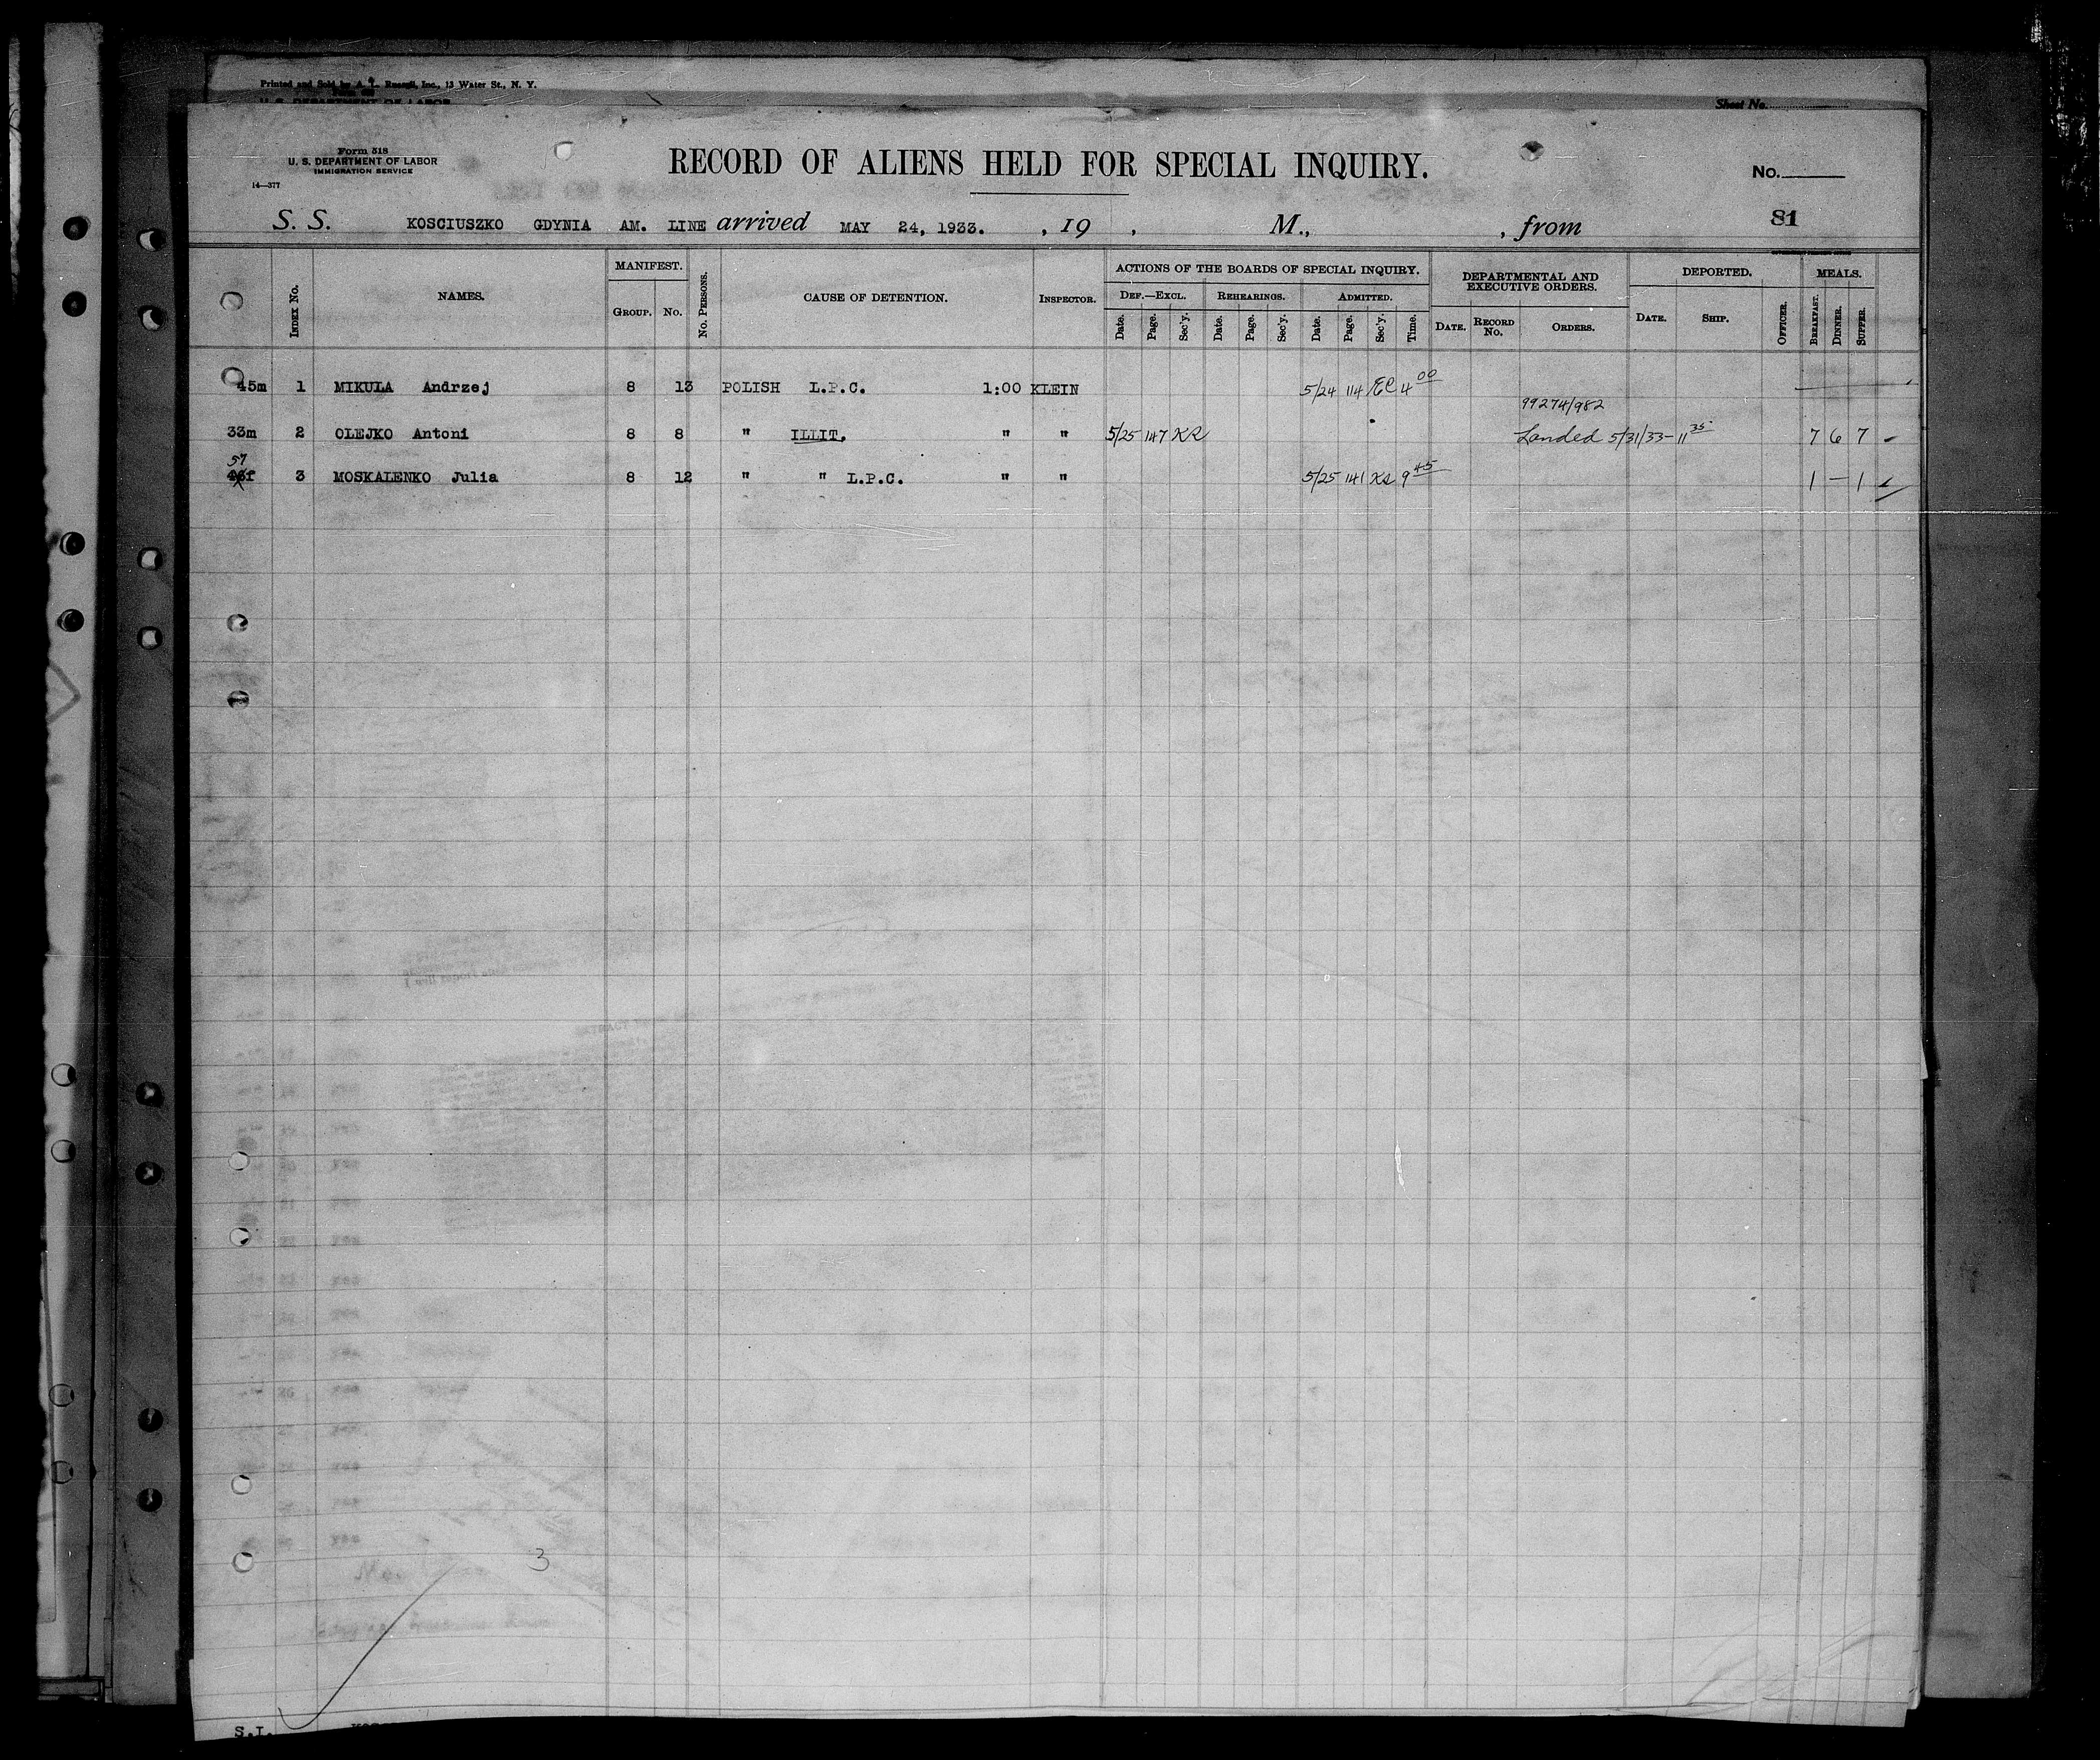 Printed and Sold by A. L. Russell, Inc., 13 Water St., N. Y.
U. S. DEPARTMENT OF LABOR
Sheet No.
Form 518
U. S. DEPARTMENT OF LABOR
IMMIGRATION SERVICE
14—377
RECORD OF ALIENS HELD FOR SPECIAL INQUIRY.
No.
S. S. KOSCIUSZKO GDYNIA AM. LINE arrived MAY 24, 1933. , 19 , M., , from 81
Index No. NAMES. MANIFEST. Group. No. No. Persons. CAUSE OF DETENTION. Inspector. ACTIONS OF THE BOARDS OF SPECIAL INQUIRY. DEPARTMENTAL AND EXECUTIVE ORDERS. DEPORTED. MEALS.
Def.—Excl. Rehearings. Admitted.
Date. Page. Sec'y. Date. Page. Sec'y. Date. Page. Sec'y. Time. Date. Record No. Orders. Date. Ship. Officer. Breakfast. Dinner. Supper.
45m 1 MIKULA Andrzej 8 13 POLISH L.P.C. 1:00 KLEIN 5/24 114 EC 4 00
99274/982
33m 2 OLEJKO Antoni 8 8 " ILLIT. " " 5/25 147 KR Landed 5/31/33 - 11 35 7 6 7
57
46f 3 MOSKALENKO Julia 8 12 " " L.P.C. " " 5/25 141 KR 9 45 1 — 1
3
S.I.